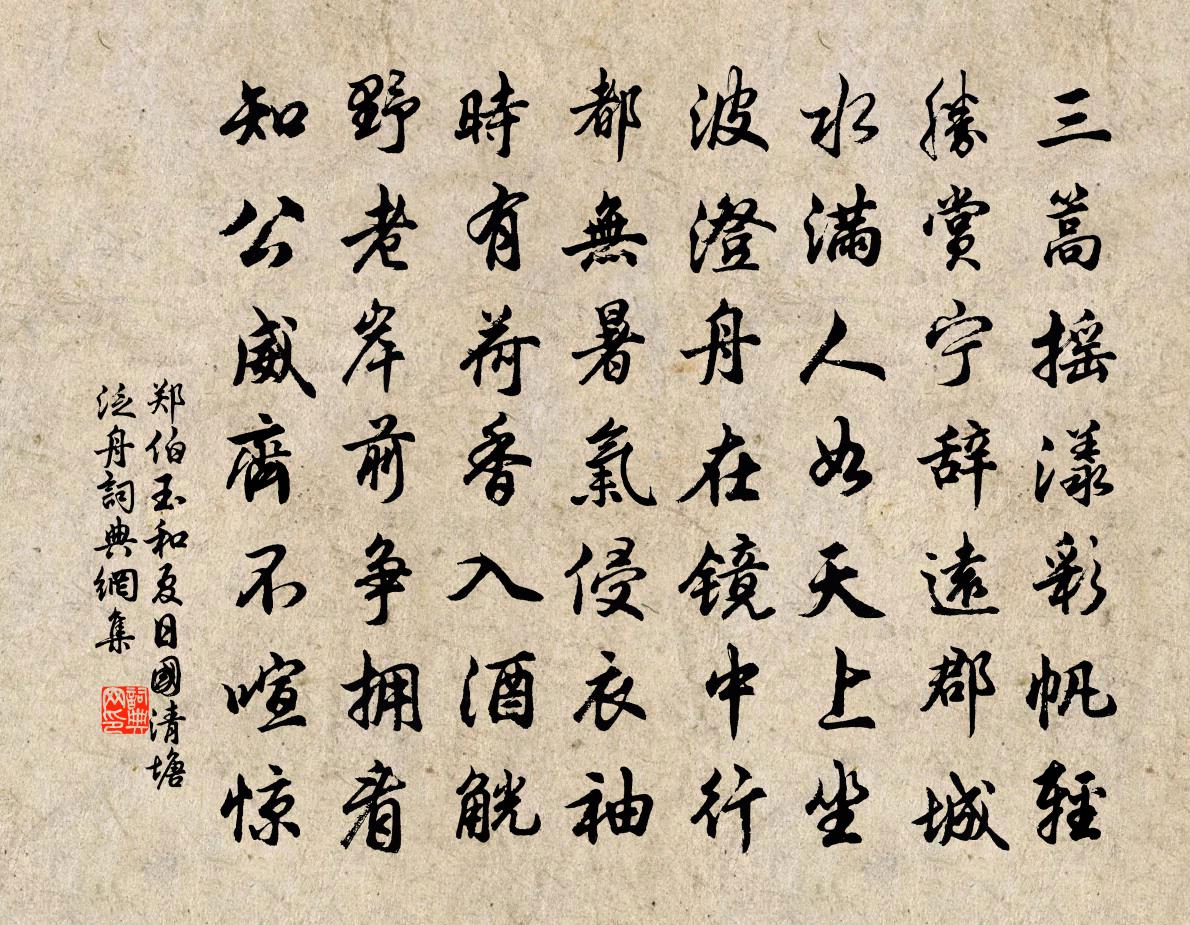 三篙摇漾彩帆輕
勝賞宁辞遠郡城
水滿人如天上坐
波澄舟在镜中行
都無暑氣侵衣袖
時有荷香入酒觥
野老岸前争拥看
知公威齊不喧惊
郑伯玉和夏日國清塘
泛舟詞典網集
詞典网印